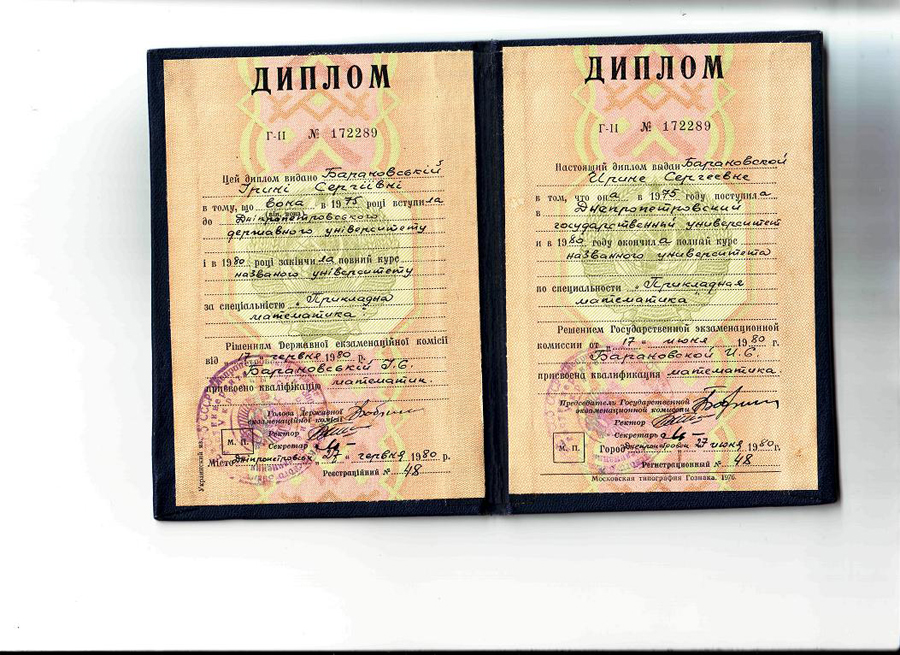 ДИПЛОМ
Г-II № 172289
Цей диплом видано Барановській
Ірині Сергіївні
в тому, що вона в 1975 році вступила
до Дніпропетровського
державного університету
і в 1980 році закінчила повний курс
названого університету
за спеціальністю „Прикладна
математика“
Рішенням Державної екзаменаційної комісії
від „17“ червня 1980 р.
Барановській І.С.
присвоєно кваліфікацію математик.
Голова Державної
екзаменаційної комісії
Ректор
Секретар
М. П.
Місто Дніпропетровськ „27“ червня 1980 р.
Реєстраційний № 48
Украинский яз.
ДИПЛОМ
Г-II № 172289
Настоящий диплом выдан Барановской
Ирине Сергеевне
в том, что она в 1975 году поступила
в Днепропетровский
государственный университет
и в 1980 году окончила полный курс
названного университета
по специальности „Прикладная
математика“
Решением Государственной экзаменационной
комиссии от „17“ июня 1980 г.
Барановской И.С.
присвоена квалификация математика.
Председатель Государственной
экзаменационной комиссии
Ректор
Секретарь
М. П.
Город Днепропетровск 27 июня 1980 г.
Регистрационный № 48
Московская типография Гознака. 1976.